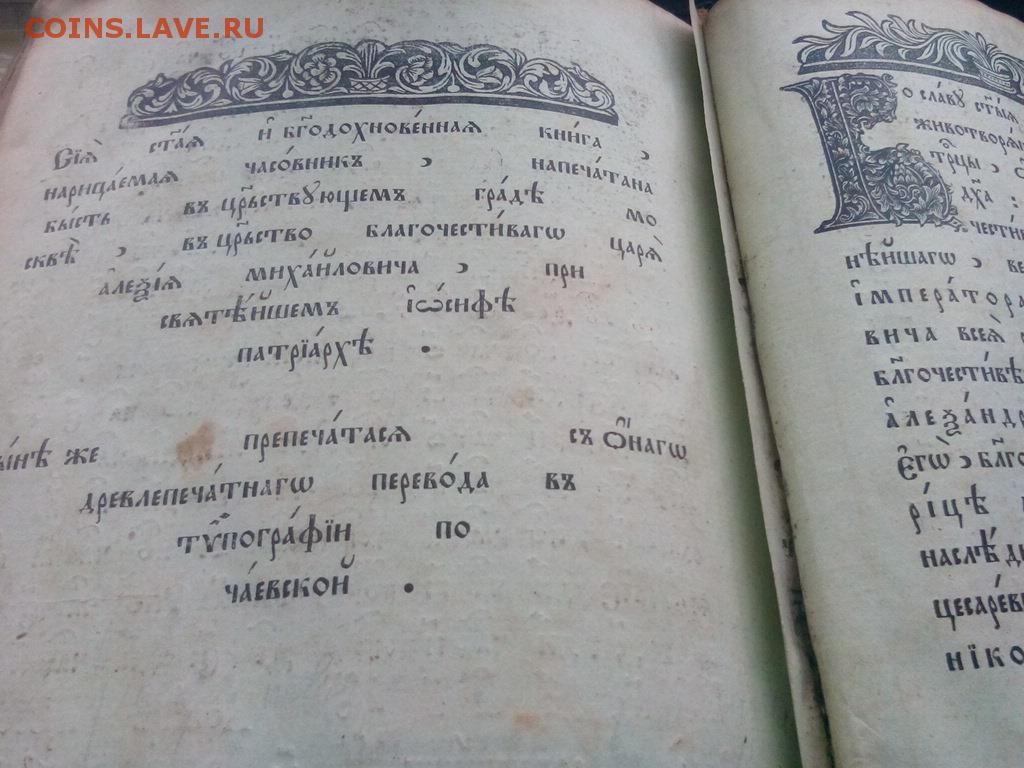 COINS.LAVE.RU
Сїѧ̀ ст҃а́ѧ и҆ бг҃одохнове́ннаѧ кни́га ,
нарица́емаѧ часо́вникъ , напеча́тана
бы́сть въ цр҃ьствꙋющемъ гра́дѣ мо
сквѣ̀ , въ цр҃ьство благочести́вагѡ царѧ̀
а҆леѯі́ѧ миха́йловича , при
свѧтѣ́йшемъ і҆ѡ́сифѣ
патрїа́рхѣ .
ы́нѣ же препеча́тасѧ съ ѻ҆́нагѡ
древлепеча́тнагѡ перево́да въ
тѷпогра́фїи по
ча́евской .
Во сла́вꙋ ст҃ы́ѧ
животворѧ́
трⷪ҇цы ,
дх҃а :
чести́в
нѣ́йшагѡ , ве
і҆мпера́тора
вича всеѧ̀
блг҃очести́вѣ
а҆леѯа́ндр
є҆гѡ̀ , блг҃о
рі́цѣ
наслѣ́д
цесаре́в
нїко